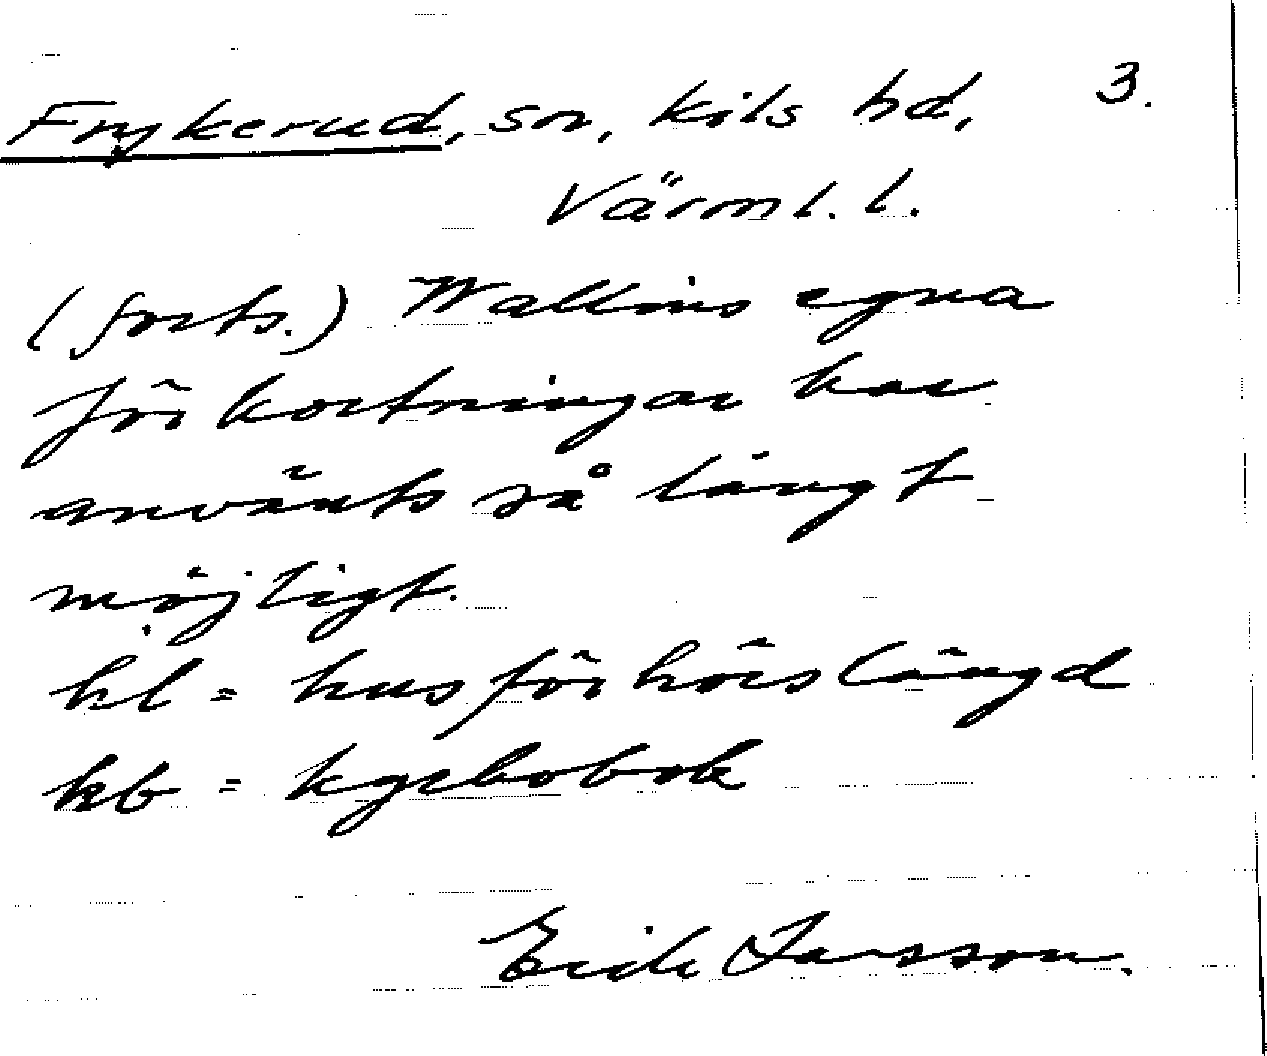 Frykerud, sn, Kils hd, 3.
Värml. l.
(forts.) Wallins egna
förkortningar har
använts så långt
möjligt.
hl = husförhörslängd
kb = kyrkobok
Erik Larsson.